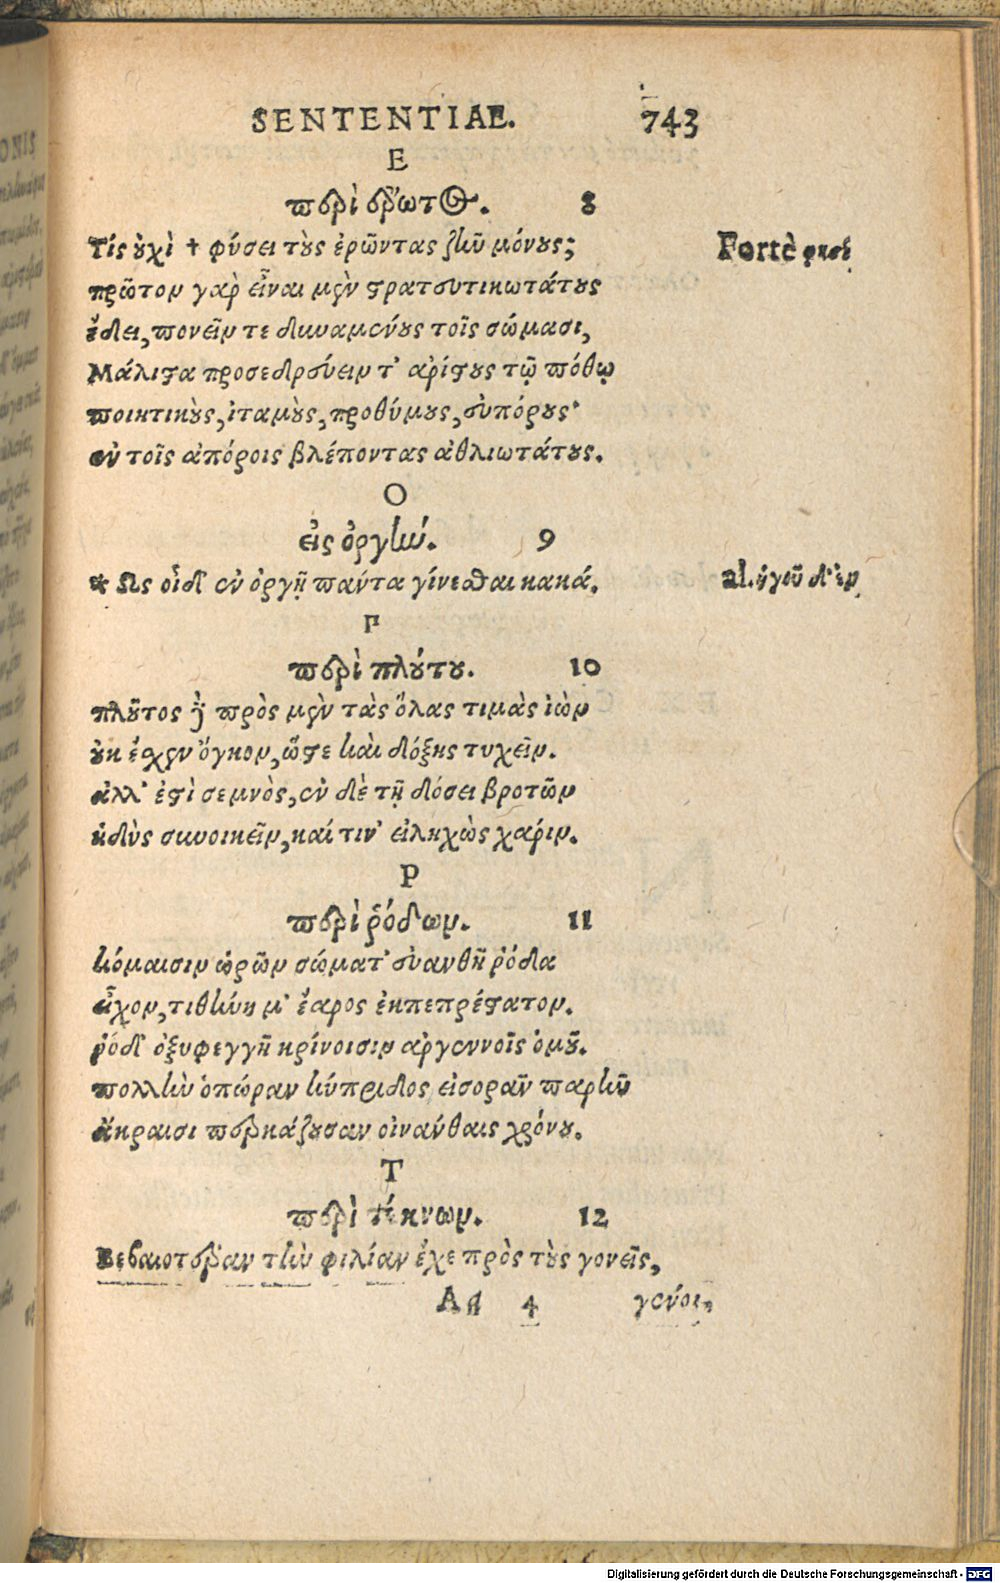 SENTENTIAE. 743
E
περὶ ἔρωτος. 8
Τίς οὐχὶ † φύσει τοὺς ἐρῶντας ζῆν μόνους; Fortè φησί
πρῶτον γὰρ εἶναι μὲν στρατευτικωτάτους
ἔδει, πονεῖν τε δυναμένους τοῖς σώμασι,
Μάλιστα προσεδρεύειν τ' ἀρίστους τῷ πόθῳ
ποιητικοὺς, ἰταμοὺς, προθύμους, εὐπόρους
ἐν τοῖς ἀπόροις βλέποντας ἀθλιωτάτους.
O
εἰς ὀργήν. 9
* Ως οἶδ' ἐν ὀργῇ πάντα γίνεσθαι κακά. al. ἡγοῦ δ' ἐν
Γ
περὶ πλούτου. 10
πλοῦτος ἦν πρὸς μὲν τὰς ὅλας τιμὰς ἰὼν
οὐκ ἔσχεν ὄγκον, ὥστε καὶ δόξης τυχεῖν.
ἀλλ' ἐστὶ σεμνὸς, ἐν δὲ τῇ δόσει βροτῶν
ἡδὺς συνοικεῖν, καί τιν' εἰληχὼς χάριν.
P
περὶ ῥόδων. 11
κόμαισιν ὡρῶν σώματ' εὐανθῆ ῥόδα
εἶχον, τιθήνη μ' ἔαρος ἐκπεπρέστατον.
ῥόδ' ὀξυφεγγῆ κρίνοισιν ἀργεννοῖς ὁμοῦ.
πολλὴν ὀπώραν κύπριδος εἰσορᾶν παρῆν
ἄκραισι περκάζουσαν οἰνάνθαις χρόνου.
T
περὶ τέκνων. 12
Βεβαιοτέραν τὴν φιλίαν ἔχε πρὸς τοὺς γονεῖς,
Aa 4 γένοι,
Digitalisierung gefördert durch die Deutsche Forschungsgemeinschaft - DFG